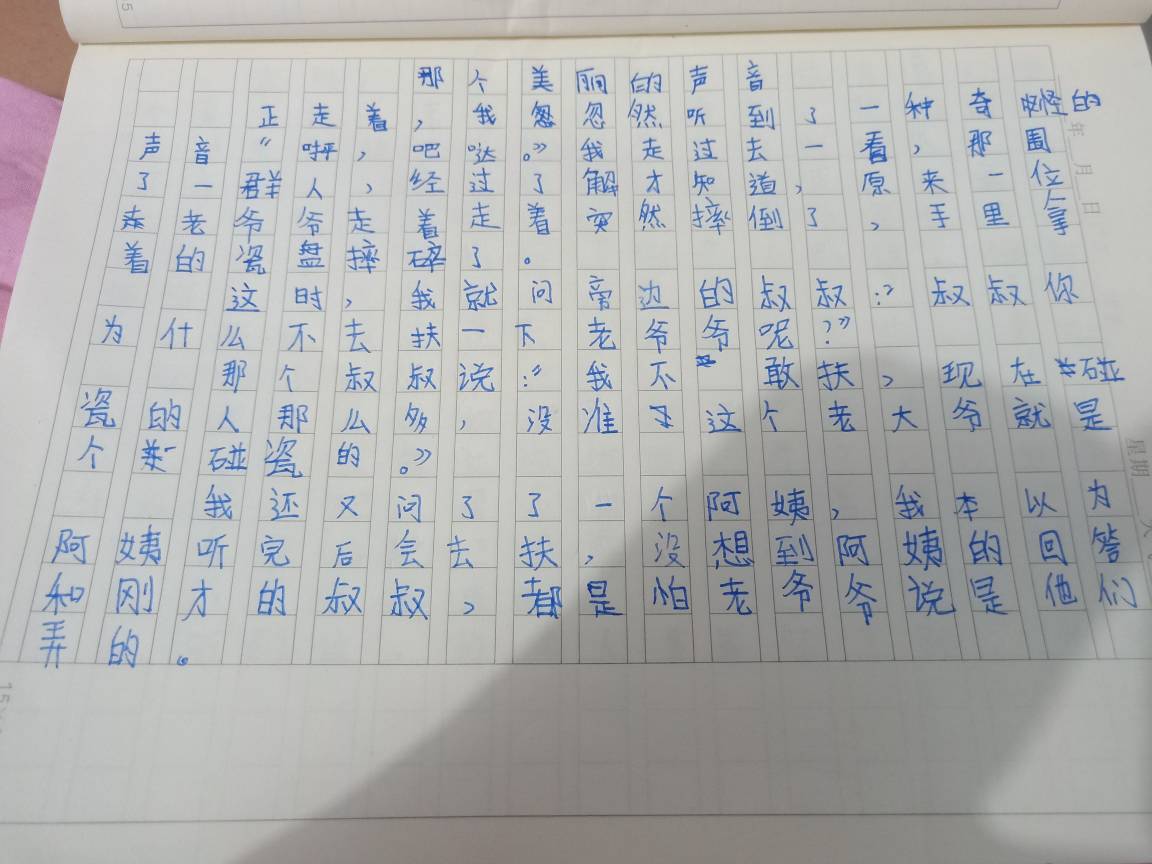 那个美丽的声音
正走着，我忽忽然听到了一种奇怪的
声音“呯，吧哒。”我走过去一看，那围
了一群人，经过了解才知道，原来一位
老爷爷走着走着突然摔倒了，手里拿
着的瓷盘摔碎了。
这时，我就问旁边的叔叔：“叔叔你
为什么不去扶一下老爷爷呢？”
那个叔叔说：“我不敢扶，现在碰
瓷的人那么多，没准这个老大爷就是
个碰瓷的。”
我还又问了了一个阿姨，我本以为
阿姨听完后会去扶，没想到阿姨的回答
和刚才的叔叔，都是怕老爷爷说是他们
弄的。